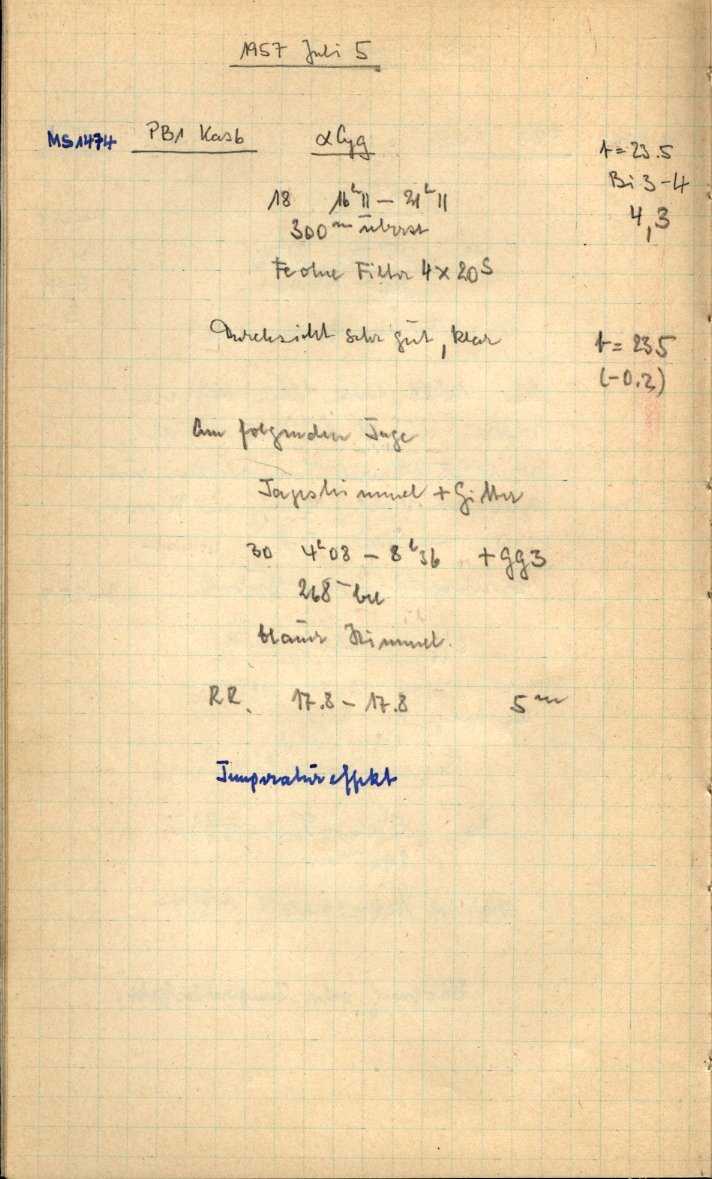 1957 Juli 5
MS1474 PB1 Kas6 αCyg t = 23.5
Bi 3-4
18 16ʰ11 – 21ʰ11 4,3
300ᵐ überst
Fe ohne Filter 4 x 20ˢ
Durchsicht sehr gut, klar t = 23.5
(-0.2)
Am folgenden Tage
Tageshimmel + Gitter
30 4ʰ08 – 8ʰ36 + GG3
268ᵐ bel
blauer Himmel.
RR. 17.8 – 17.8 5ᵐ
Temperatureffekt